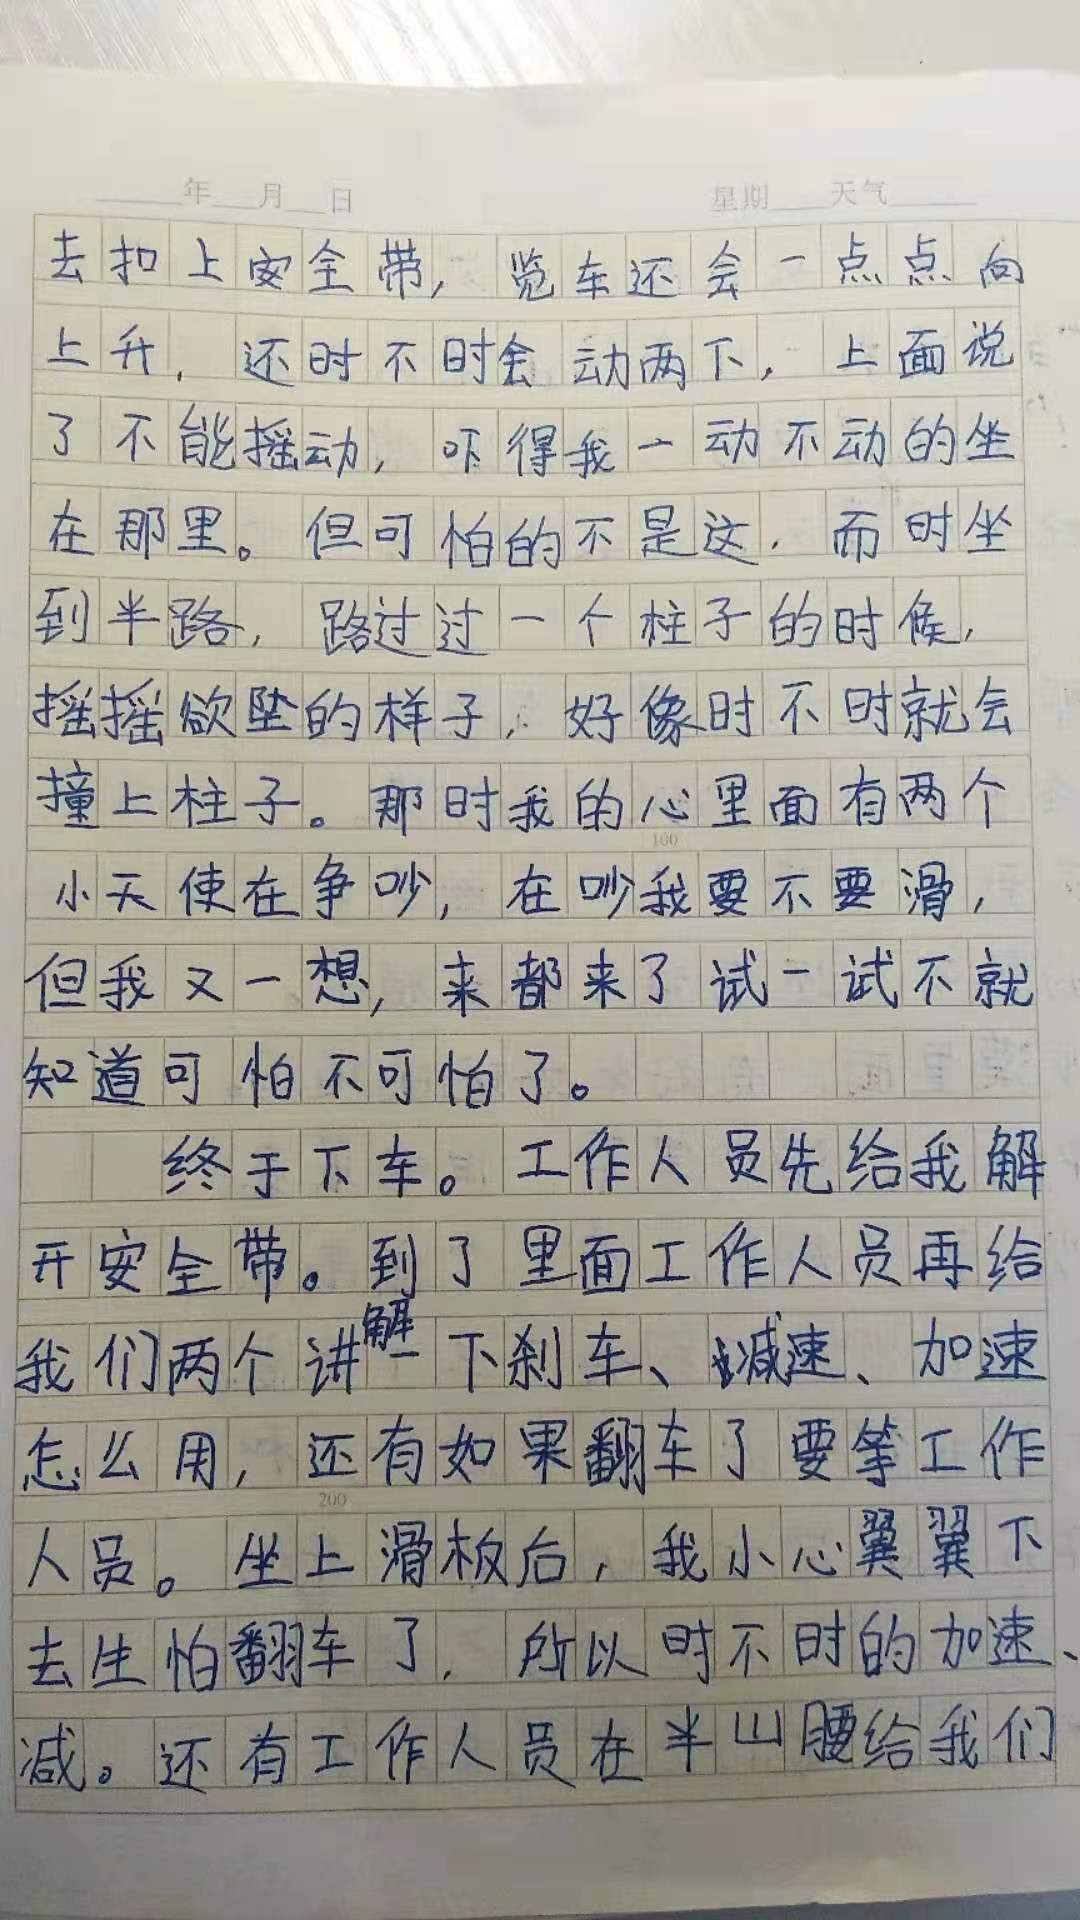 年 月 日 星期 天气
去扣上安全带，览车还会一点点向
上升，还时不时会动两下，上面说
了不能摇动，吓得我一动不动的坐
在那里。但可怕的不是这，而时坐
到半路，路过过一个柱子的时候，
摇摇欲坠的样子，好像时不时就会
撞上柱子。那时我的心里面有两个
100
小天使在争吵，在吵我要不要滑，
但我又一想，来都来了试一试不就
知道可怕不可怕了。
终于下车。工作人员先给我解
开安全带。到了里面工作人员再给
我们两个讲解一下刹车、减速、加速
怎么用，还有如果翻车了要等工作
200
人员。坐上滑板后，我小心翼翼下
去生怕翻车了，所以时不时的加速、
减。还有工作人员在半山腰给我们